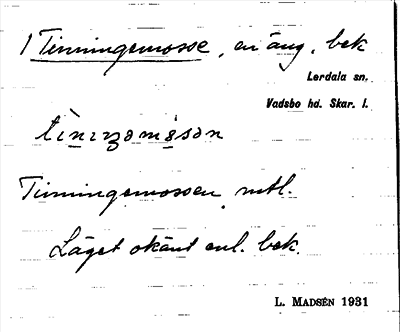 1 Tinningemosse, en äng, bek
Lerdala sn.
Vadsbo hd. Skar. l.
Tinningemossen, mtl.
Läget okänt enl. bek.
L. MADSÉN 1931